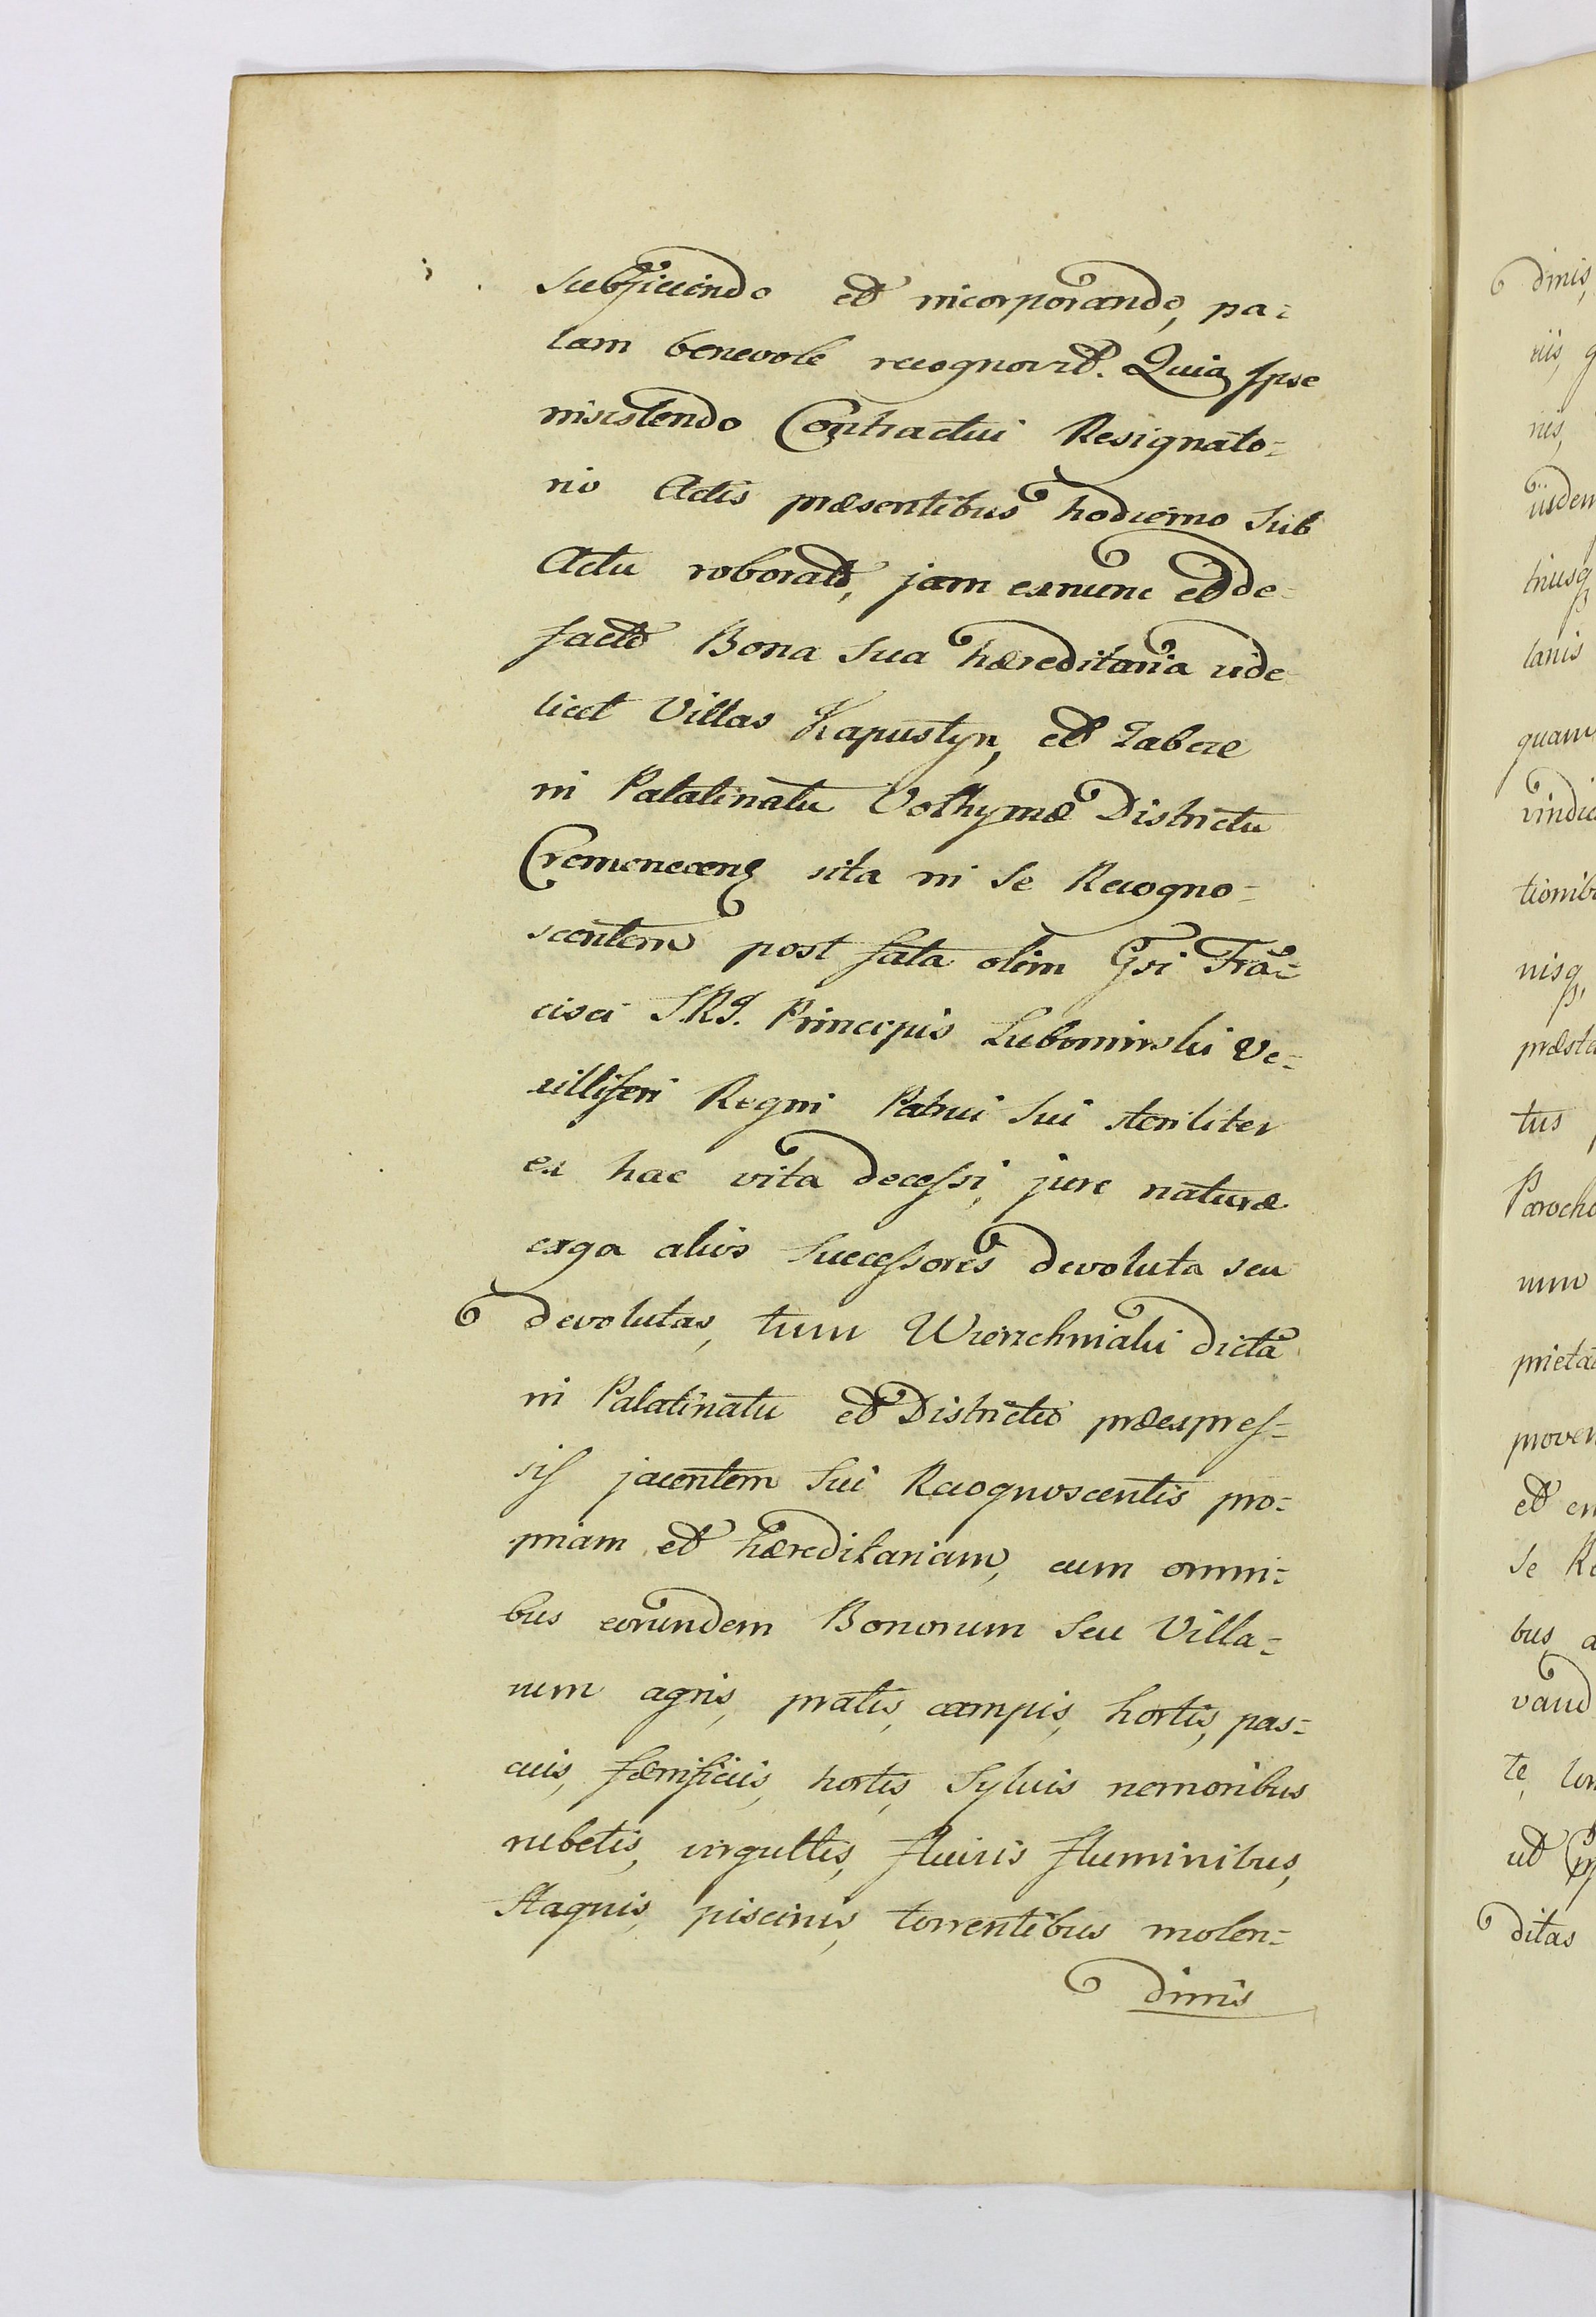 subjiciendo et incorporando, pa=
lam benevole recognovit. Quia Ipse
insistendo Contractui Resignato=
rio Actis præsentibus hodierno sub
Actu roborato, jam exnunc et de
facto Bona sua hæreditaria vide
licet Villas Kapustyn, et Zabcze
in Palatinatu Volhyniæ Districtu
Cremenecens sita in se Recogno=
scentem post fata olim Gsi Fran=
cisci S.R.I. Principis Lubomirski Ve=
xilliferi Regni Patrui sui steriliter
ex hac vita decessi, jure naturæ
erga alios Successores devoluta seu
devolutas, tum Wierzchniaki dictã
in Palatinatu et Districtu præexpres=
sis jacentem sui Recognoscentis pro=
priam et hæreditariam, cum omni=
bus eorundem Bonorum seu Villa=
rum agris, pratis, campis, hortis, pas=
cuis, fænificiis, hortis, Sylvis nemoribus
rubetis, virgultis, fluviis fluminibus,
stagnis, piscinis, torrentibus molen=
dinis
dinis,
riis,
nis,
iisdem
triusq
lanis
quam
vindic
tionib
nisq
præsta
tus
Parocho
num
prieta
prover
et
se
bus
vand
te,
ut
ditas